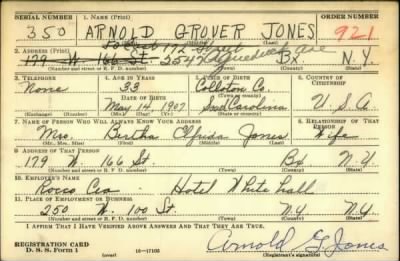 SERIAL NUMBER 1. NAME (Print) ORDER NUMBER
350 ARNOLD GROVER JONES 921
(First) (Middle) (Last)
2. ADDRESS (Print)
179 W. 166 St. Bx. N.Y.
(Number and street or R. F. D. number) (Town) (County) (State)
3. TELEPHONE 4. AGE IN YEARS 5. PLACE OF BIRTH 6. COUNTRY OF CITIZENSHIP
None 33 Colleton Co.
DATE OF BIRTH (Town or county)
May 14, 1907 South Carolina U.S.A.
(Exchange) (Number) (Mo.) (Day) (Yr.) (State or country)
7. NAME OF PERSON WHO WILL ALWAYS KNOW YOUR ADDRESS 8. RELATIONSHIP OF THAT PERSON
Mrs. Bertha Jones Wife
(Mr., Mrs., Miss) (First) (Middle) (Last)
9. ADDRESS OF THAT PERSON
179 W. 166 St. Bx N.Y.
(Number and street or R. F. D. number) (Town) (County) (State)
10. EMPLOYER'S NAME
Rocco Hotel Whitehall
11. PLACE OF EMPLOYMENT OR BUSINESS
250 W. 100 St. N.Y. N.Y.
(Number and street or R. F. D. number) (Town) (County) (State)
I AFFIRM THAT I HAVE VERIFIED ABOVE ANSWERS AND THAT THEY ARE TRUE.
REGISTRATION CARD
D. S. S. Form 1 (over) 16—17105 Arnold G. Jones
(Registrant's signature)